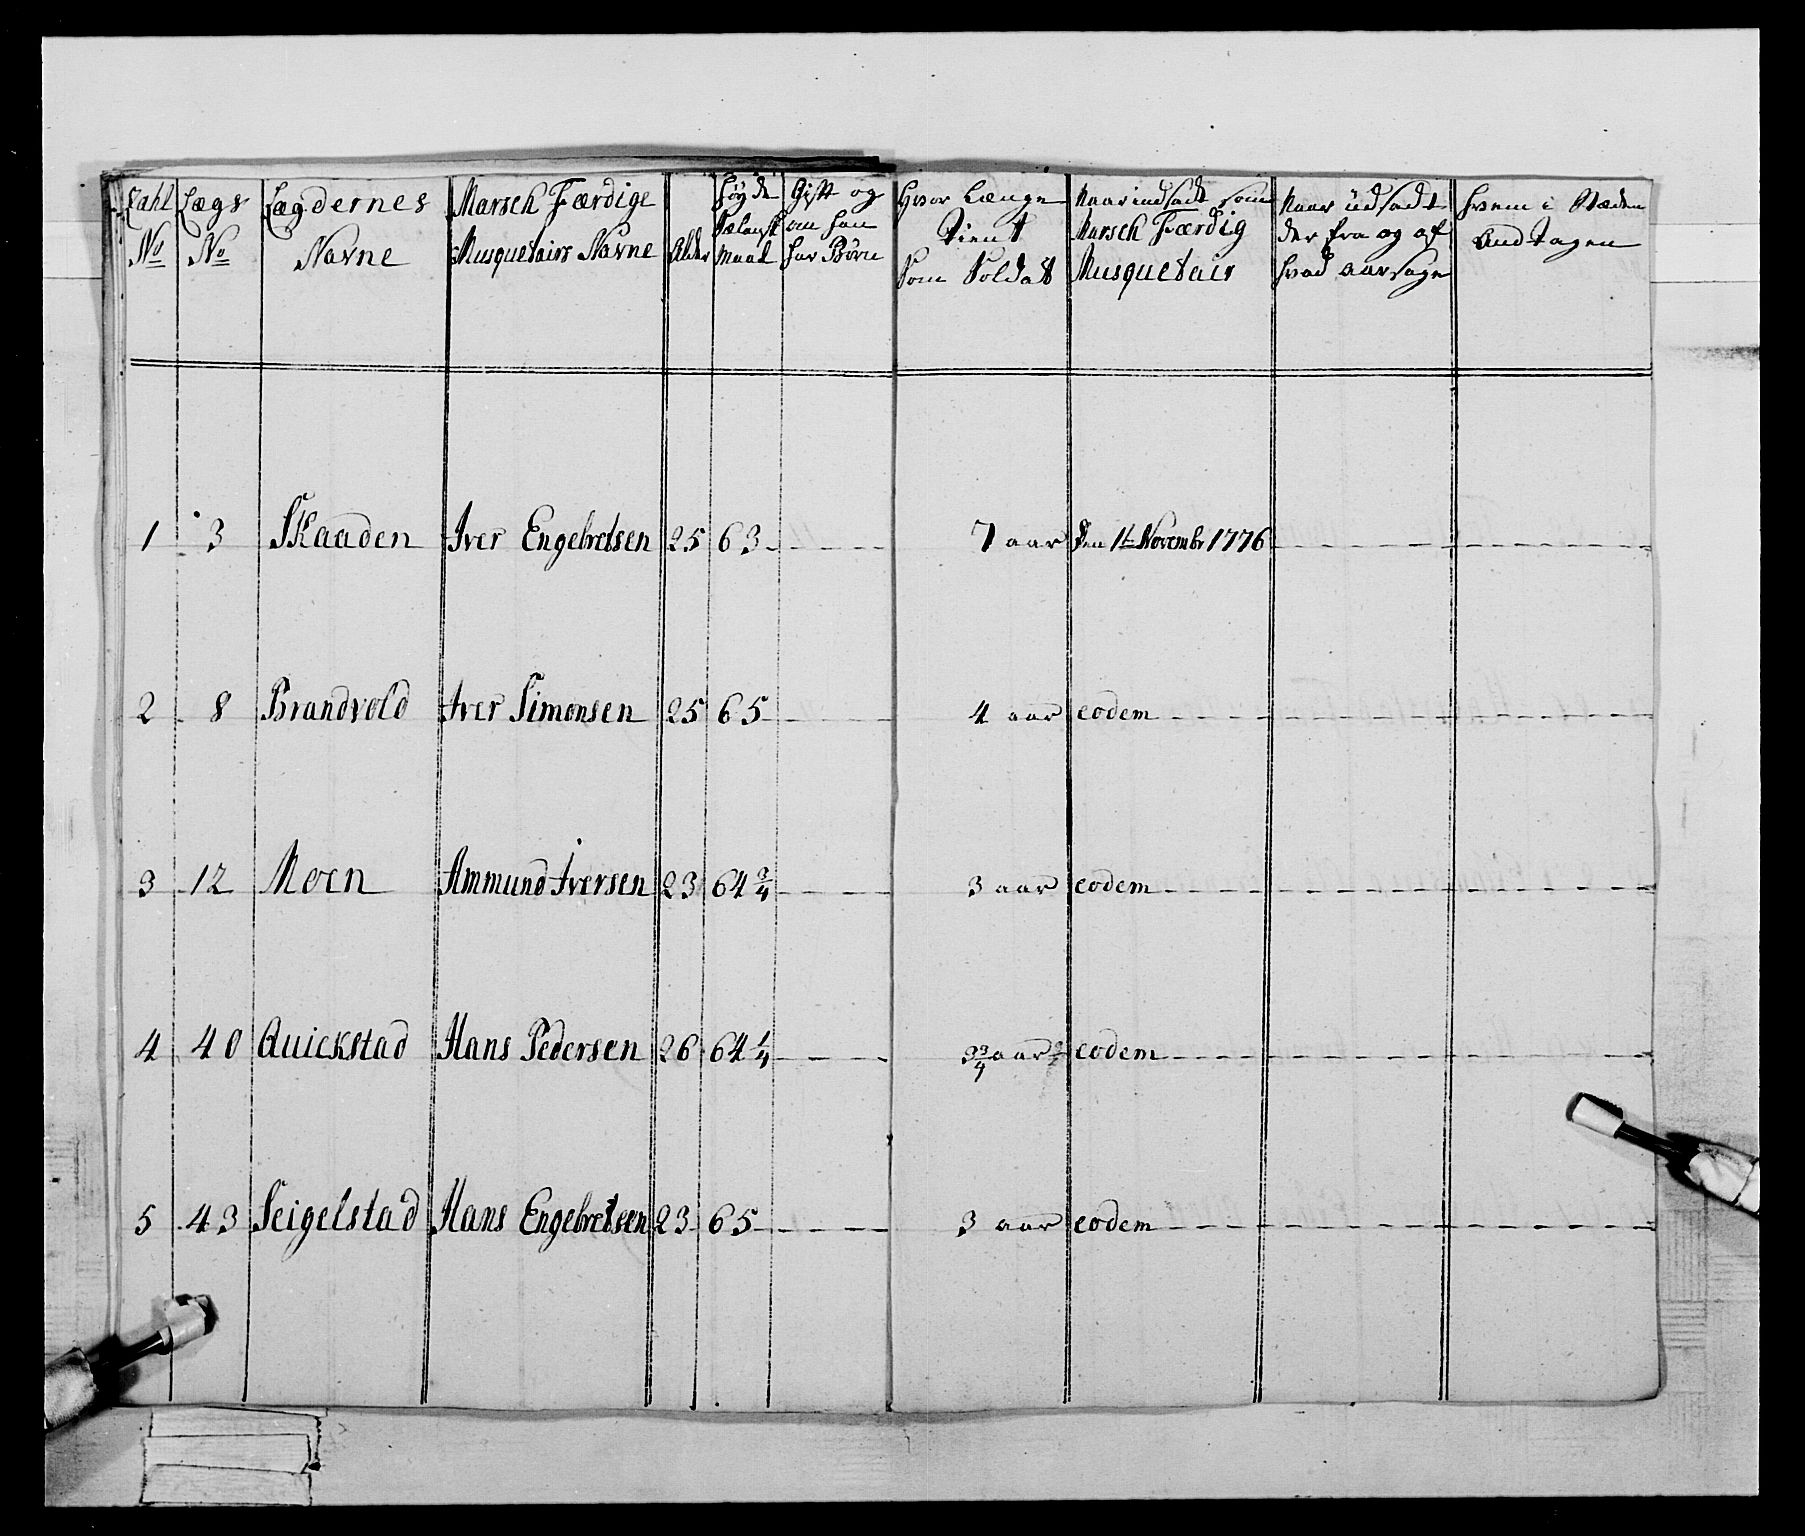 Zahl No
Lægs No
Lægdernes Navne
Marsch Færdige Musquetairs Navne
Alder
Høyde Sælandsk Maal
Gift og om han har Børn
Hvor Længe tient som Soldat
Naar indsadt som Marsch Færdig Musquetair
Naar udsadt der fra og af hvad aarsage
Hvem i Stæden Andtagen
1 3 Skaaden Iver Engebretsen 25 63 7 aar Den 1te Novembr 1776
2 8 Brandvold Iver Simonsen 25 65 4 aar eodem
3 12 Moen Ammund Iversen 23 64 3/4 3 aar eodem
4 40 Quickstad Hans Pedersen 26 64 1/4 3 3/4 aar eodem
5 43 Seigelstad Hans Engebretsen 23 65 3 aar eodem